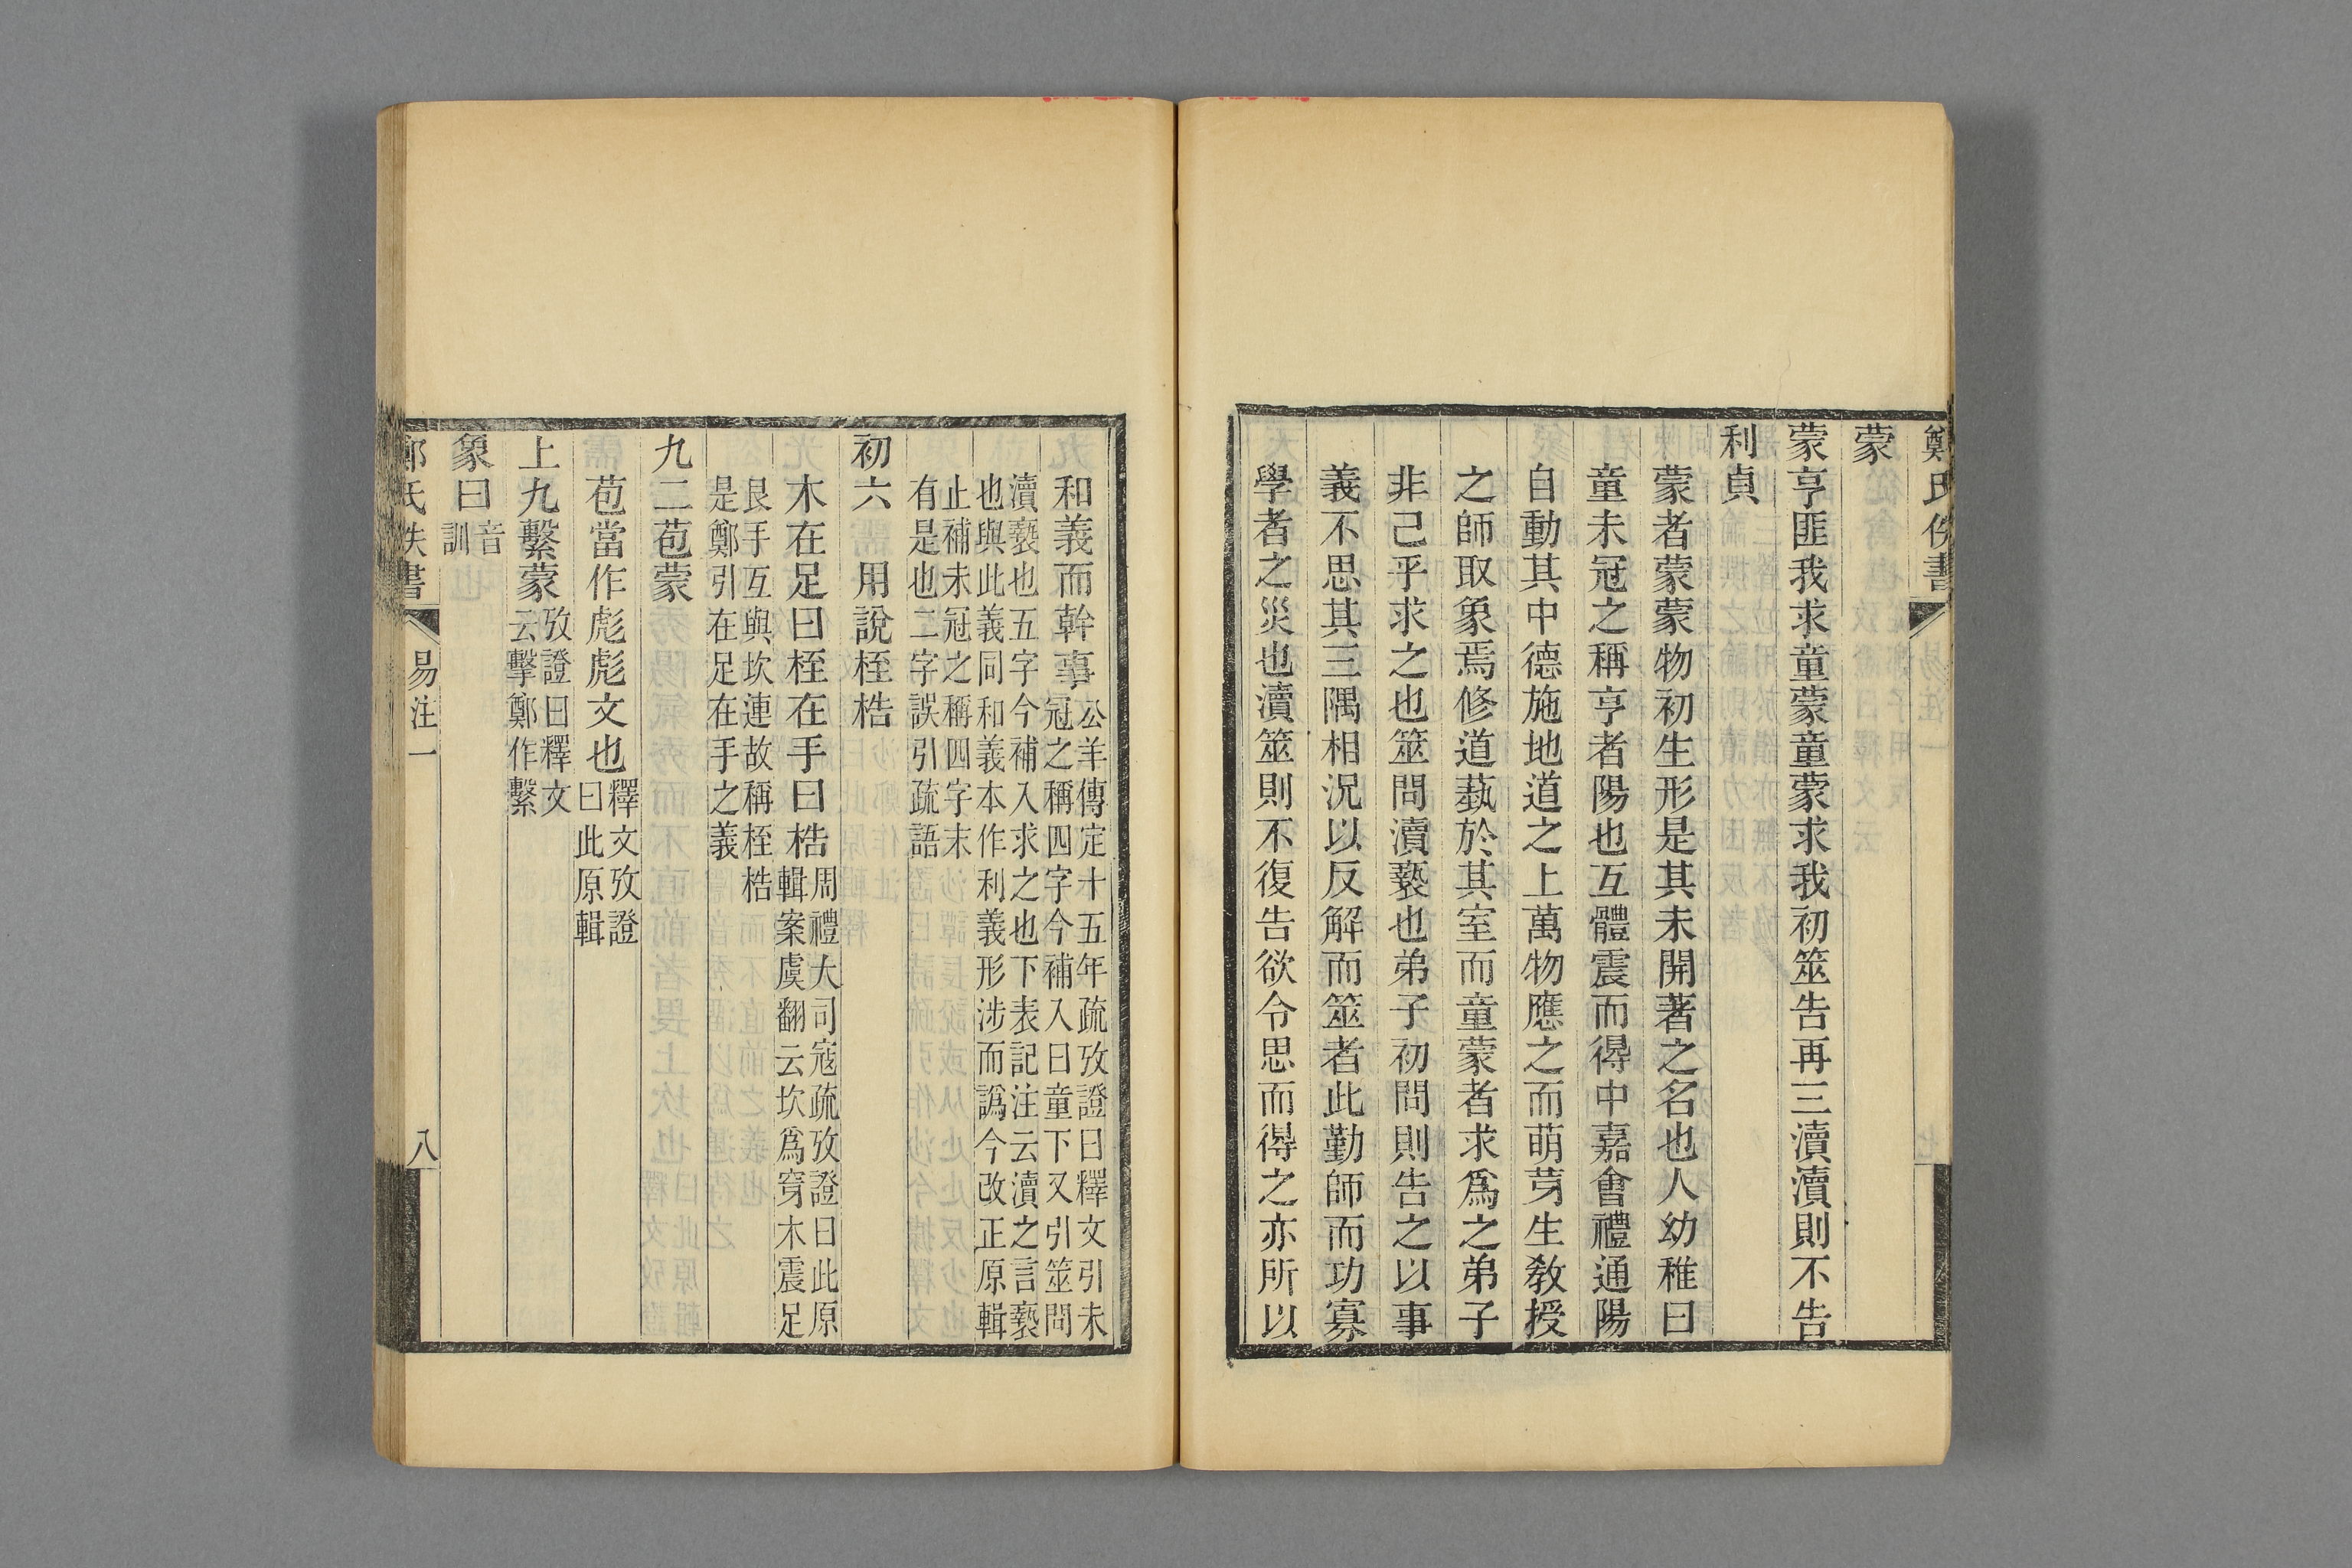 鄭氏佚書
蒙
蒙亨匪我求童蒙童蒙求我初筮告再三瀆瀆則不告
利貞
蒙者蒙蒙物初生形是其未開著之名也人幼稚曰
童未冠之稱亨者陽也互體震而得中嘉會禮通陽
自動其中德施地道之上萬物應之而萌芽生教授
之師取象焉修道蓺於其室而童蒙者求爲之弟子
非己乎求之也筮問瀆褻也弟子初問則告之以事
義不思其三隅相況以反解而筮者此勤師而功寡
學者之災也瀆筮則不復告欲令思而得之亦所以
和義而幹事公羊傳定十五年疏攷證曰釋文引未
冠之稱四字今補入曰童下又引筮問
瀆褻也五字今補入求之也下表記注云瀆之言褻
也與此義同和義本作利義形涉而譌今改正原輯
止補未冠之稱四字末
有是也二字誤引疏語
初六用說桎梏
木在足曰桎在手曰梏周禮大司寇疏攷證曰此原
輯案虞翻云坎爲穿木震足
艮手互與坎連故稱桎梏
是鄭引在足在手之義
九二苞蒙
苞當作彪彪文也釋文攷證
曰此原輯
上九繫蒙攷證曰釋文
云擊鄭作繫
象曰音
訓
鄭氏佚書
易注一
八